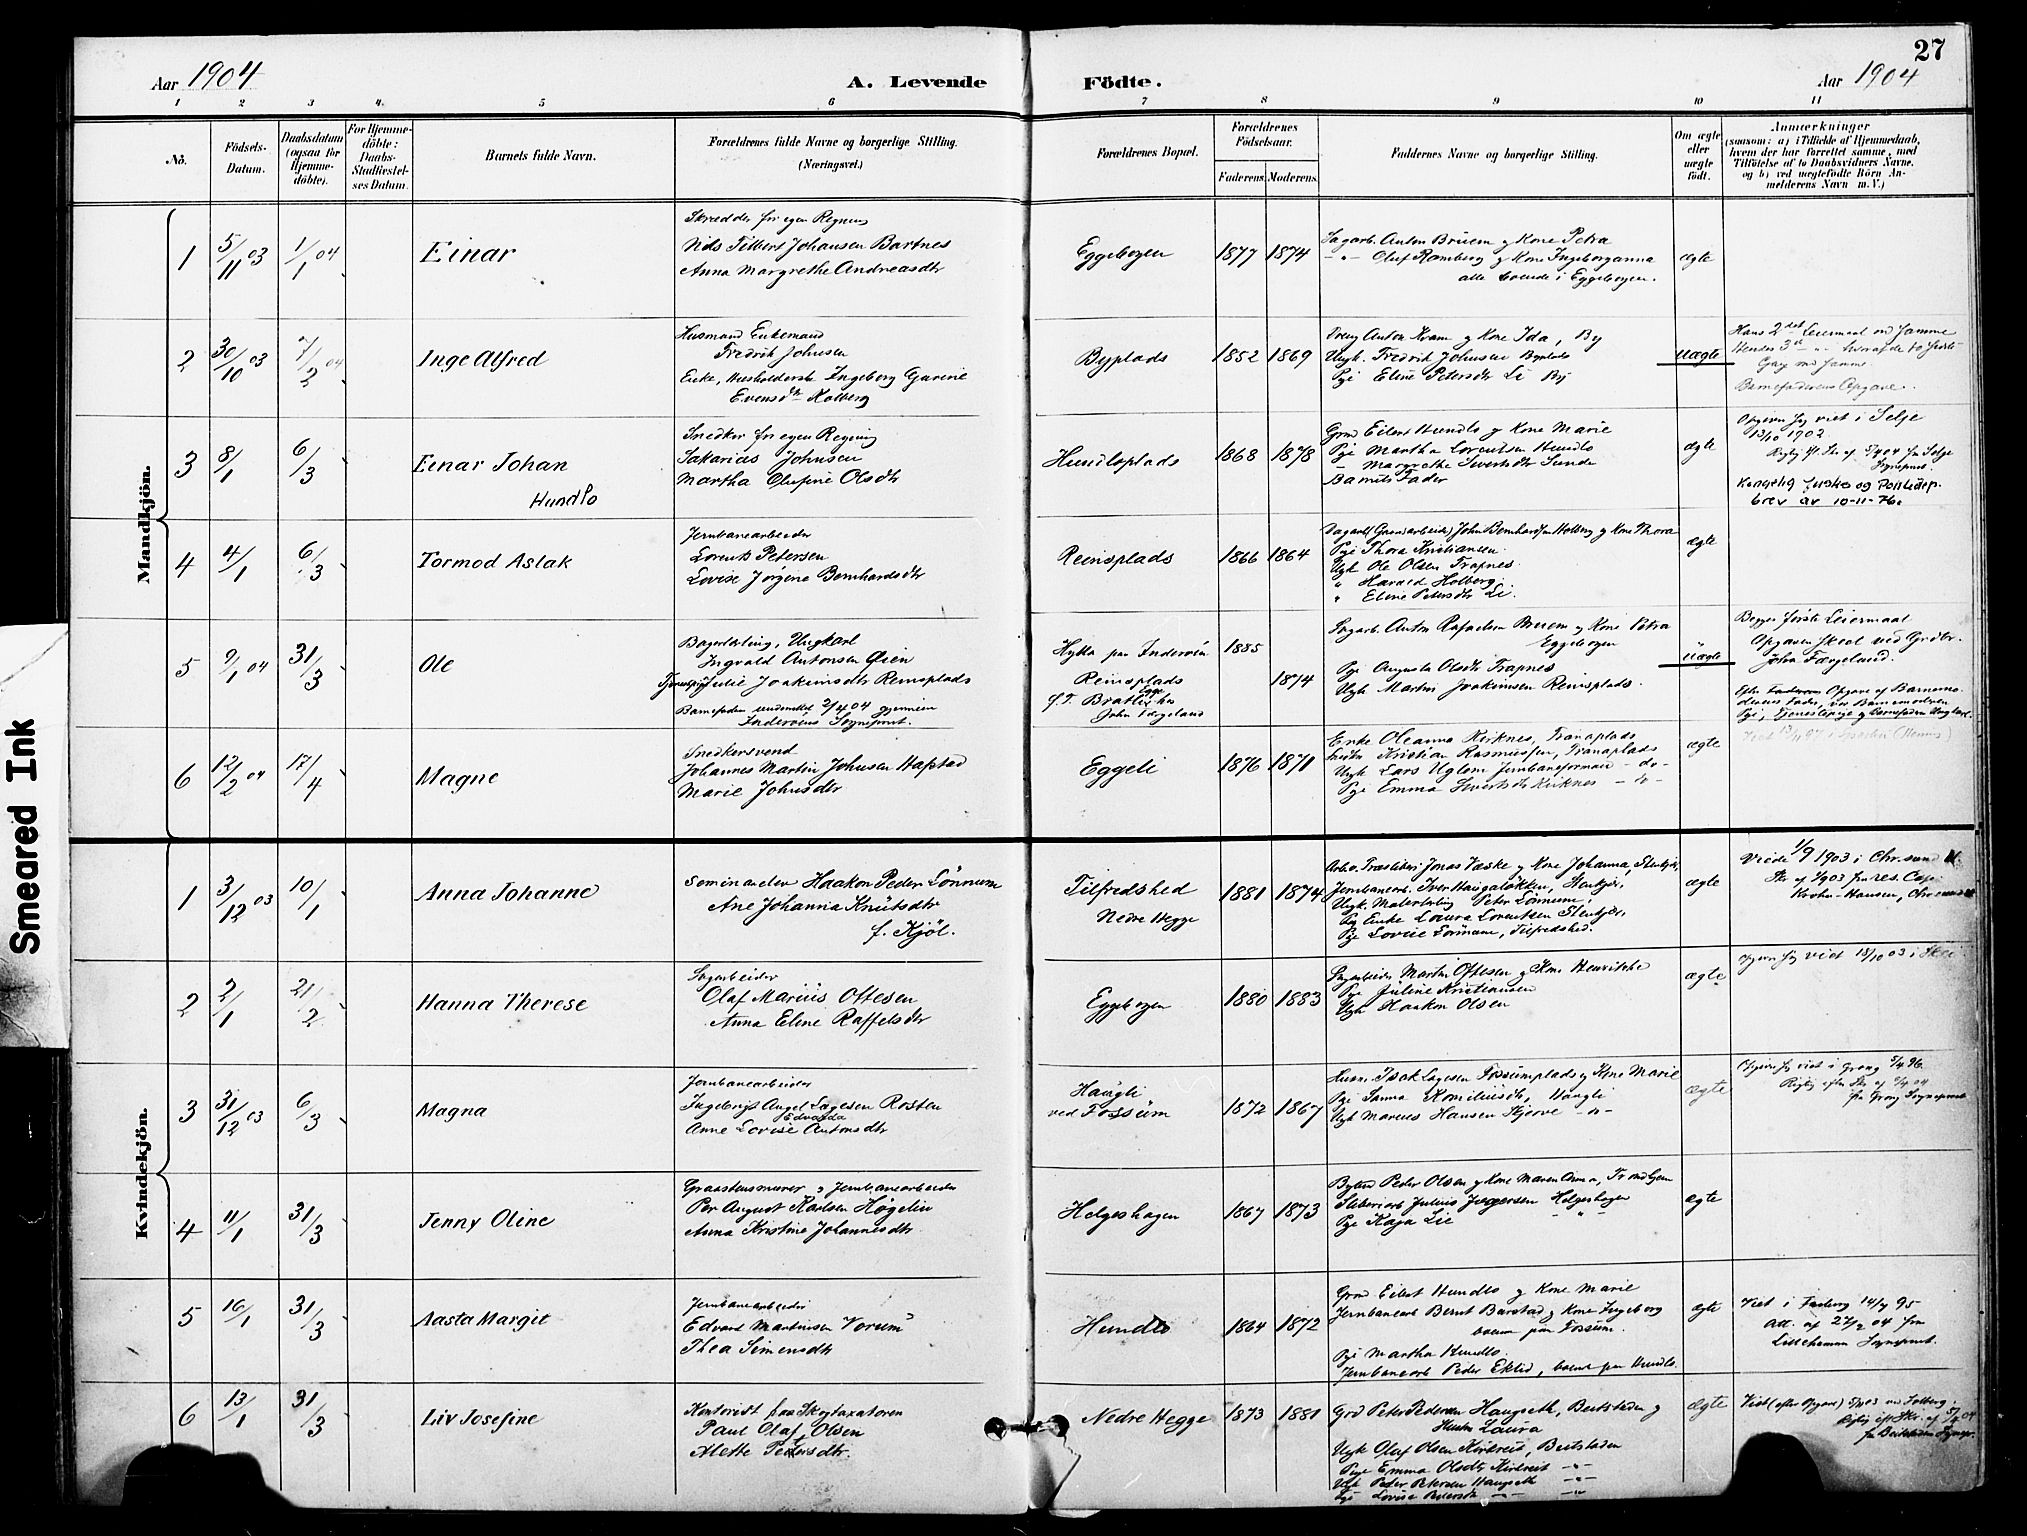 27
Aar 1904
A. Levende
Födte.
Aar 1904
1 2 3 4. 5 6 7 8 9 10 11
No.
Födsels-
Datum.
Daabsdatum
(ogsaa for
Hjemme-
döbte).
For Hjemme-
döbte:
Daabs-
Stadfæstel-
ses Datum.
Barnets fulde Navn.
Forældrenes fulde Navne og borgerlige Stilling.
(Næringsvei.)
Forældrenes Bopæl.
Forældrenes
Födselsaar.
Faderens.
Moderens.
Faddernes Navne og borgerlige Stilling.
Om ægte
eller
uægte
født.
Anmærkninger
(saasom: a) i Tilfælde af Hjemmedaab,
hvem der har forrettet samme, med
Tilföielse af to Daabsvidners Navne,
og b) ved uægtefödte Börn An-
melderens Navn m. V.)
Mandkjön.
1
5/11 03
1/1 04
Einar
Skrædder for egen Regning
Nils Tilbert Johansen Bartnes
Anna Margrethe Andreasdtr
Eggebogen
1877
1874
Sagarb. Anton Bruem og Kone Petra
Oluf Ramberg og Kone Ingeborganna
alle boende i Eggebogen.
ægte
2
30/10 03
7/2 04
Inge Alfred
Husmand Enkemand
Fredrik Johnsen
Enke, Husholderske Ingeborg Gurine
Evensdtr Kolberg
Byplads
1852
1869
Anton Kvam og Kone Ida, By
Ungk. Fredrik Johnsen Byplads
Pige Eline Petersdtr Li By
uægte
Hans 2det Leiermaal med samme
Hendes 3die
Gang med samme.
Barnefaderens Opgave.
3
8/1
6/3
Einar Johan
Hundlo
Snedker for egen Regning
Sakarias Johnsen
Martha Olufine Olsdtr
Hundloplads
1868
1878
Grd Eilert Hundlo og Kone Marie
Pige Martha Lorentsen Hundlo
Margrethe Sivertsdtr Sunde
Barnets Fader
ægte
Opgiven sig viet i Selje
13/10 1902
Kongelig Justis og Politidep.
brev av 10-11-76.
4
4/1
6/3
Tormod Aslak
Jernbanearbeider
Lorents Petersen
Lovise Jørgine Bernhardsdtr
Reinsplads
1866
1864
Dagarb. (Grovarbeider) John Bernhardsen Holberg og Kone Thora
Pige Thora Kristiansen
Ungk Ole Olsen Trapnes
" Harald Holberg
" Eline Petersdtr Li.
ægte
5
9/1 04
31/3
Ole
Bagerlærling, Ungkarl
Ingvald Antonsen Øien
Tjenestepige Julie Joakimsdtr Reinsplads
Barnefaden underrettet 2/4 04 gjennem
Inderøens Sogneprest.
Hylla paa Inderøen
Reinsplads
p.T. Bratli Egge hos
John Færgeland
1885
1874
Sagarb. Anton Rafaelsen Bruem og Kone Petra
Eggebogen
Pige Augusta Olsdtr Trapnes
Ungk Martin Joakimsen Reinsplads.
uægte
Begges første Leiermaal
Opgaven skeet ved Grdbr.
John Færgeland.
6
12/2 04
17/4
Magne
Snedkersvend
Johannes Martin Johnsen Hafstad
Marie Johnsdtr
Eggeli
1876
1871
Enke Oleanna Kirknes, Tranaplads
Kristian Rasmussen, Tranaplads
Ungk Lars Uglem Jernbaneformand - do -
Pige Emma Sivertsdtr Kirknes - do -
ægte
Kvindekjön.
1
3/12 03
10/1
Anna Johanne
Seminarelev Haakon Peder Lönnum
Ane Johanna Knutsdtr
f. Kjöl.
Tilfredshed
Nedre Hegge
1881
1874
Jonas Væske og Kone Johanna, Stenkjer,
Jernbanearb. Iver Haugaløkken, Stenkjer,
Ungk. Malerlærling Peter Lönnum,
Pige Enke Laura Lorentsen Stenkjer,
Pige Lovise Lönnum, Tilfredshed.
ægte
Viede 1/9 1903 i Chr.sund N.
Krohn-Hansen, Chr.sund N
2
2/1
21/2
Hanna Therese
Sagarbeider
Olaf Marius Ottesen
Anna Eline Raffelsdtr
Eggebogen
1880
1883
Sagarbeider Martin Ottesen og Kone Henrikke
Pige Juline Kristiansen
Ungk Haakon Olsen
ægte
Opgiven sig viet 18/10 03 i
3
31/12 03
6/3
Magna
Jernbanearbeider
Ingebrigt Angel Lagesen Rosten
Edvarda
Anne Lovise Antonsdtr
Haugli
ved Fossum
1872
1867
Husm. Isak Lagesen Fossumplads og Kone Marie
Pige Sanna Korneliusdtr, Haugli
Ungk Marius Hansen Kjorve - do -
ægte
Opgiven sig viet i Grong 5/4 96.
fra Grong Sogneprest
4
11/1
31/3
Jenny Oline
Graastensmurer og Jernbanearbeider
Per August Karlsen Høgelin
Anna Kristine Johannesdtr
Helgeshagen
1867
1873
Peder Olsen og Kone Maren Anna, Trondhjem
Julius Jægersen Helgeshagen
Pige Kaja Lie
ægte
5
16/1
31/3
Aasta Margit
Jernbanearbeider
Edvard Martinsen Vorum
Thea Simensdtr
Hundlo
1864
1872
Grd Eilert Hundlo og Kone Marie
Jernbanearb Bernt Barstad og Kone Ingeborg
boende paa Fossum.
Pige Martha Hundlo.
Jernbanearb Peder Eklid, boende paa Hundlo.
ægte
Viet i Faaberg 14/7 95
Att. af 27/2 04 fra
Lillehammer Sogneprest.
6
13/1
31/3
Liv Josefine
Kontorist hos Skogtaxatoren
Paul Olaf Olsen
Alette Petersdtr.
Nedre Hegge
1873
1881
Grd Peter Pedersen Haugseth, Beitstaden og
Hustru Laura
Ungk Olaf Olsen Kirkreit, Beitstaden
Pige Emma Olsdtr Kirkreit
Ungk Peder Petersen Haugseth
Pige Lovise Petersdtr
ægte
Smeared Ink